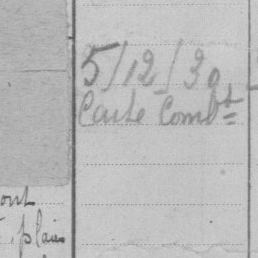 5/12/30
Carte Combt
ont
plai